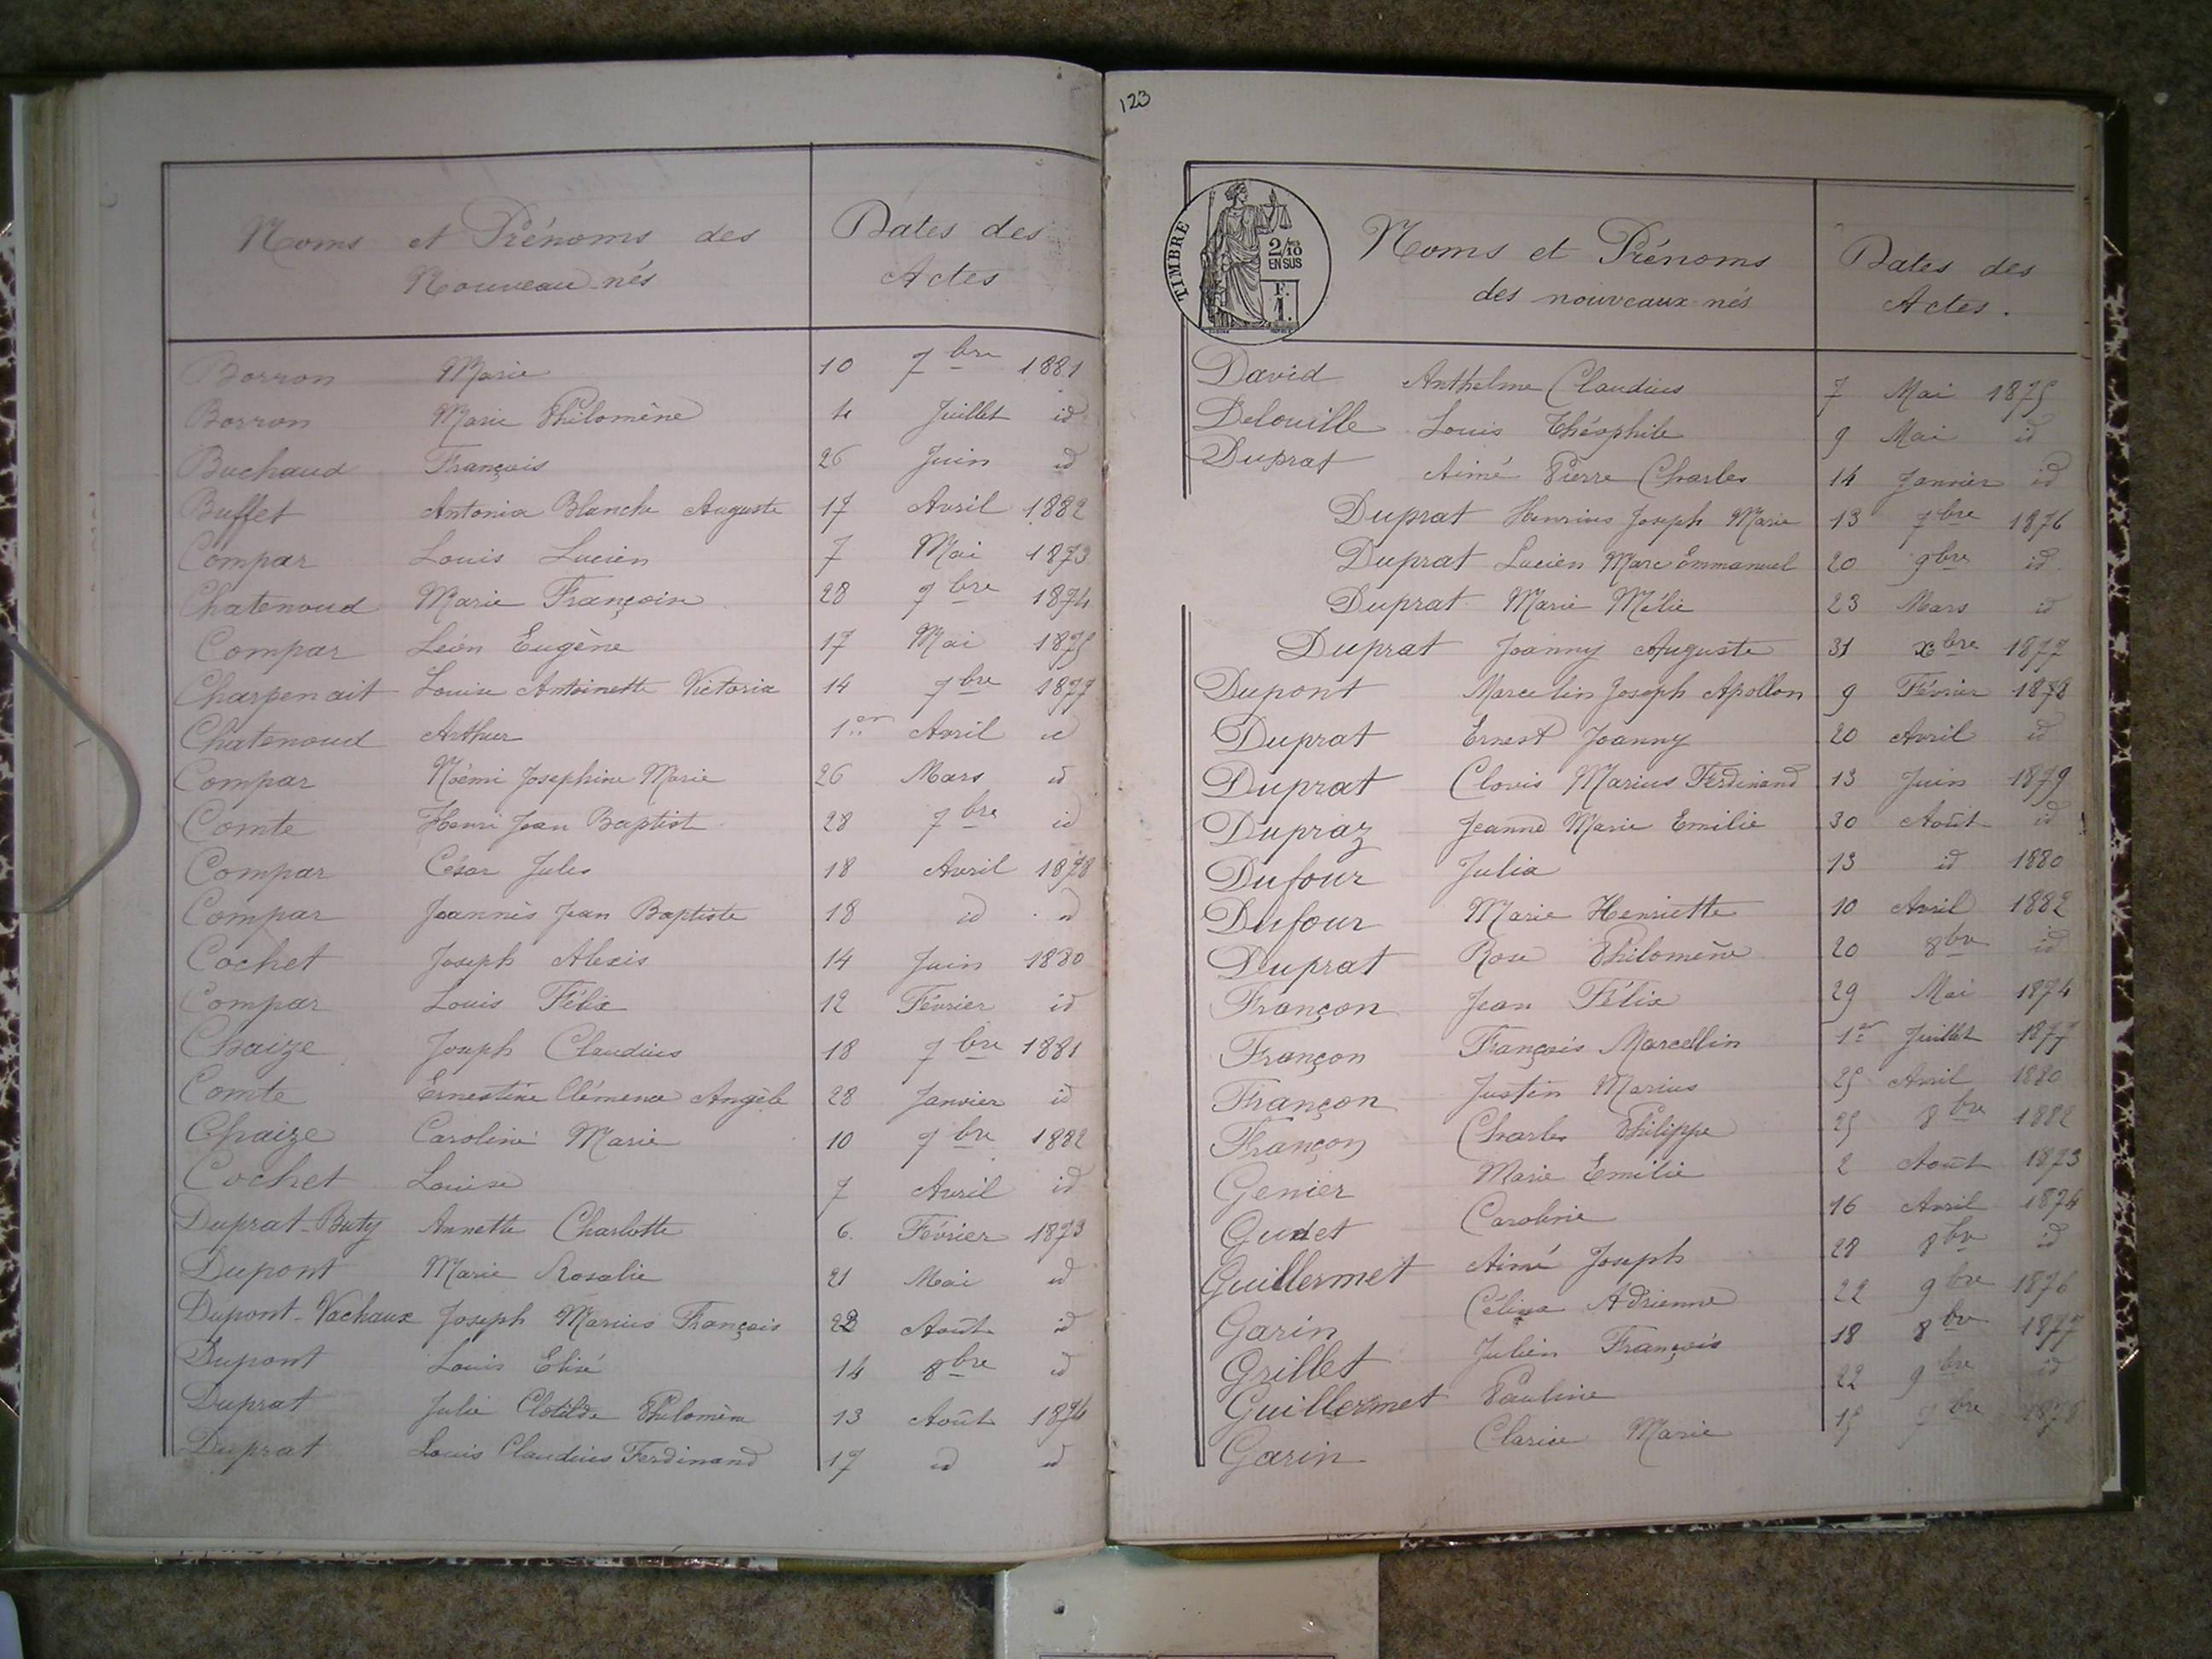 Noms et Prénoms des
Nouveau-nés
Dates des
Actes
Borron Marie 10 7bre 1881
Borron Marie Philomène 4 Juillet id
Buchaud François 26 Juin id
Buffet Antonia Blanche Auguste 17 Avril 1882
Compar Louis Lucien 7 Mai 1873
Chatenoud Marie Françoise 28 9bre 1874
Compar Léon Eugène 17 Mai 1875
Charpenait Louise Antoinette Victoria 14 7bre 1877
Chatenoud Arthur 1er Avril id
Compar Noémi Josephine Marie 26 Mars id
Comte Henri Jean Baptiste 28 7bre id
Compar César Jules 18 Avril 1878
Compar Joannès Jean Baptiste 18 id id
Cochet Joseph Alexis 14 Juin 1880
Compar Louis Félix 12 Février id
Chaize Joseph Claudius 18 7bre 1881
Comte Ernestine Clémence Angèle 28 Janvier id
Chaize Caroline Marie 10 9bre 1882
Cochet Louise 7 Avril id
Duprat-Buty Annette Charlotte 6. Février 1873
Dupont Marie Rosalie 21 Mai id
Dupont-Vachaux Joseph Marius François Août id
Dupont Louis Elisé 14 8bre id
Duprat Julie Clotilde Philomène 13 Août 1874
Duprat Louis Claudius Ferdinand 17 id id
123
TIMBRE
2/10
EN SUS
F.
1.
Noms et Prénoms
des nouveaux-nés
Dates des
Actes.
David Anthelme Claudius 7 Mai 1875
Delouille Louis Théophile 9 Mai id
Duprat Aimé Pierre Charles 14 Janvier id
Duprat Henrius Joseph Marie 13 7bre 1876
Duprat Lucien Marc Emmanuel 20 9bre id
Duprat Marie Mélie 23 Mars id
Duprat Joanny Auguste 31 xbre 1877
Dupont Marcelin Joseph Apollon 9 Février 1878
Duprat Ernest Joanny 20 Avril id
Duprat Clovis Marius Ferdinand 13 Juin 1879
Dupraz Jeanne Marie Emilie 30 Août id
Dufour Julia 13 id 1880
Dufour Marie Henriette 10 Avril 1882
Duprat Rose Philomène 20 8bre id
Françon Jean Félix 29 Mai 1874
Françon François Marcellin 1er Juillet 1877
Françon Justin Marius 25 Avril 1880
Françon Charles Philippe 25 8bre 1882
Genier Marie Emilie 2 Août 1873
Gudet Caroline 16 Avril 1874
Guillermet Aimé Joseph 28 8bre id
Garin Célina Adrienne 22 9bre 1876
Grillet Julien François 18 8bre 1877
Guillermet Pauline 22 9bre id
Garin Clarice Marie 15 7bre 1878